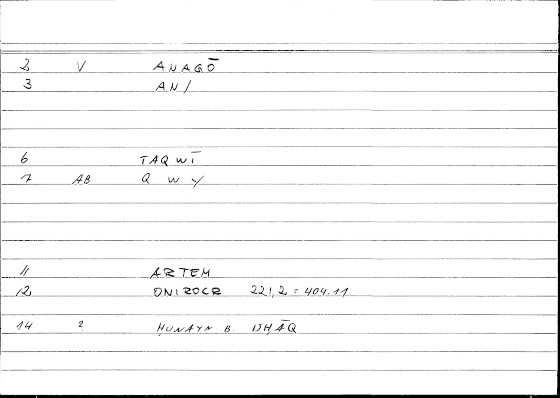 2 V ANAGŌ
3 AN/
6 TAQWĪ
7 AB Q W Y
11 ARTEM
12 ONIROCR 221,2 = 404.11
14 ? ḤUNAYN B. ISḤĀQ